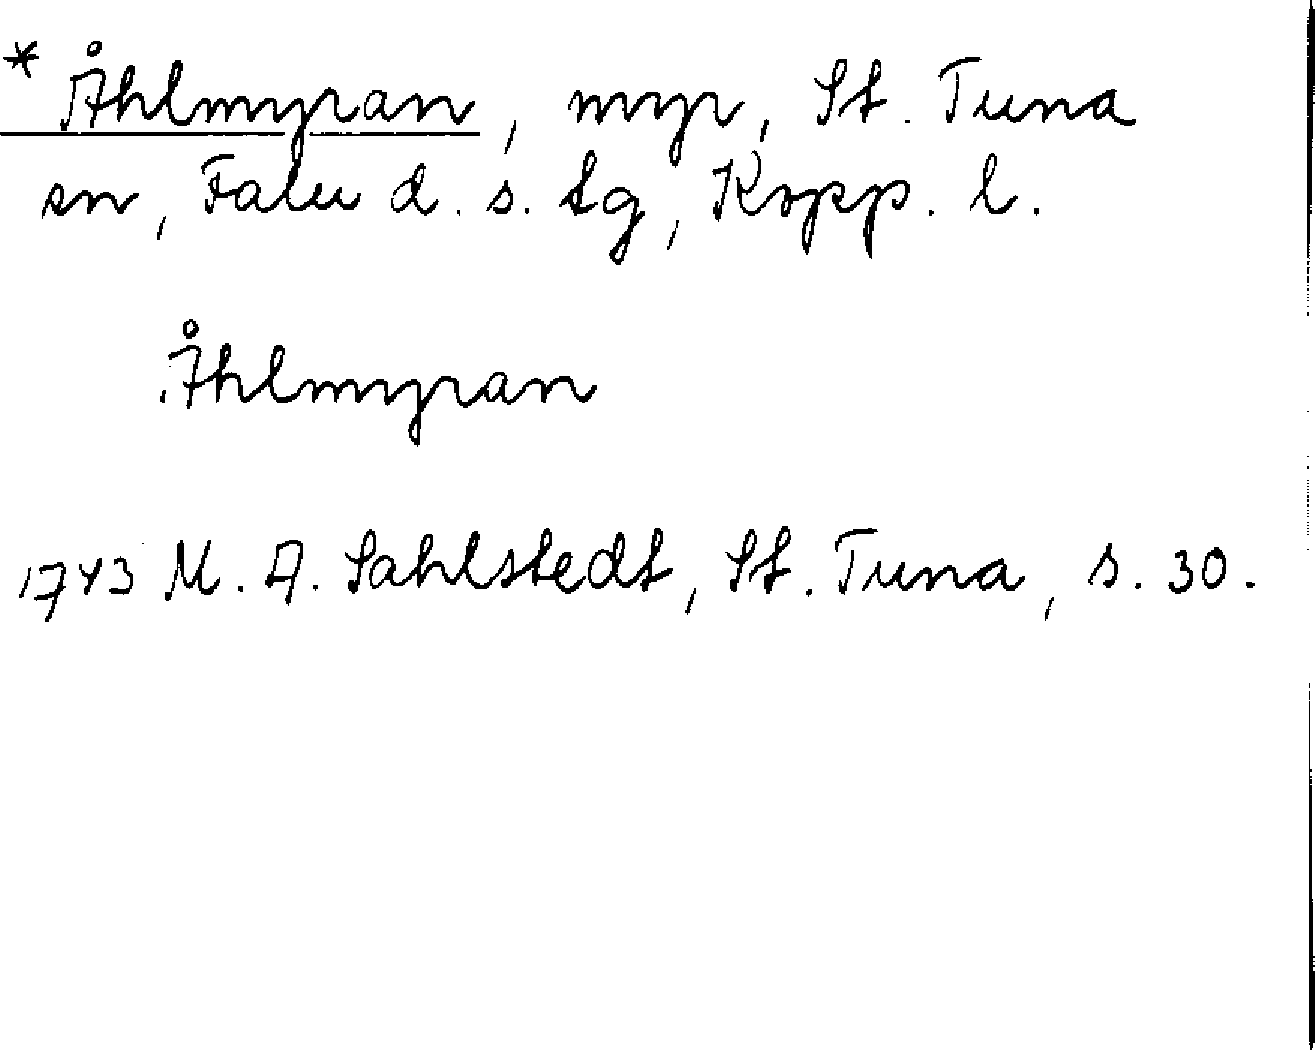 * Åhlmyran, myr, St. Tuna
sn, Falu d. s. tg, Kopp. l.
Åhlmyran
1743 M. A. Sahlstedt, St. Tuna, s. 30.